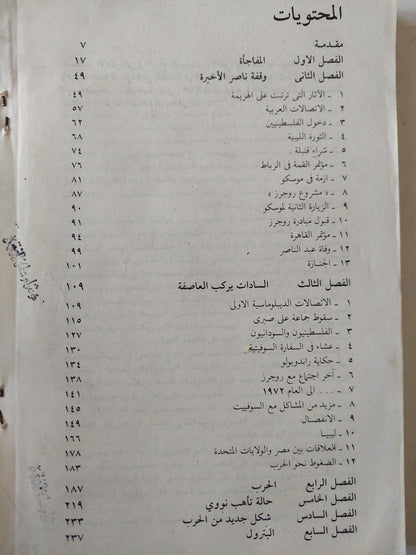 المحتويات
مقدمة ٧
الفصل الاول المفاجأة ١٧
الفصل الثانى وقفة ناصر الأخيرة ٤٩
١ - الآثار التى ترتبت على الهزيمة ٤٩
٢ - الاتصالات العربية ٥٧
٣ - دخول الفلسطينيين ٦٢
٤ - الثورة الليبية ٦٨
٥ - شراء قنبلة ٧٤
٦ - مؤتمر القمة فى الرباط ٧٦
٧ - ازمة فى موسكو ٨١
٨ - « مشروع روجرز » ٨٧
٩ - الزيارة الثانية لموسكو ٩٠
١٠ - قبول مبادرة روجرز ٩١
١١ - مؤتمر القاهرة ٩٤
١٢ - وفاة عبد الناصر ٩٩
١٣ - الجنازة ١٠١
الفصل الثالث السادات يركب العاصفة ١٠٩
١ - الاتصالات الديبلوماسية الاولى ١٠٩
٢ - سقوط جماعة على صبرى ١١٥
٣ - الفلسطينيون والسودانيون ١٢٧
٤ - عشاء فى السفارة السوفيتية ١٣٠
٥ - حكاية راندوبولو ١٣٤
٦ - آخر اجتماع مع روجرز ١٣٨
٧ - ... الى العام ١٩٧٢ ١٤١
٨ - مزيد من المشاكل مع السوفييت ١٤٥
٩ - الانفصال ١٤٩
١٠ - ليبيا ١٦٦
١١ - العلاقات بين مصر والولايات المتحدة ١٧٨
١٢ - الضغوط نحو الحرب ١٨٣
الفصل الرابع الحرب ١٨٧
الفصل الخامس حالة تأهب نووي ٢١٩
الفصل السادس شكل جديد من الحرب ٢٣٣
الفصل السابع البترول ٢٣٧